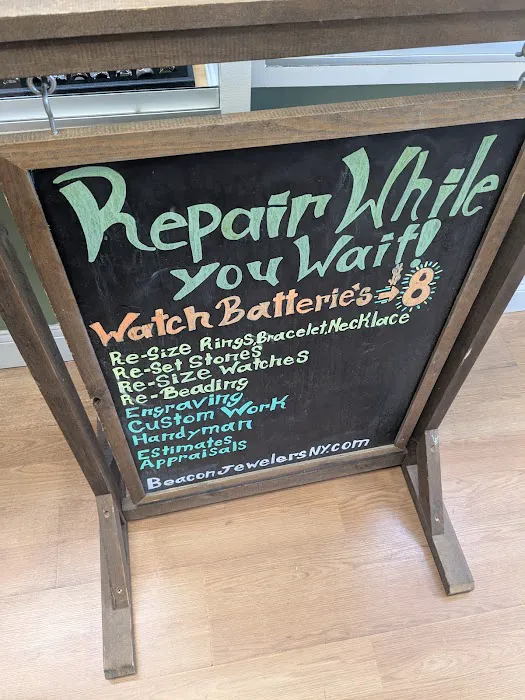 Repair While
you Wait!
Watch Batterie's → $8
Re-Size Rings, Bracelet, Necklace
Re-Set Stones
Re-Size Watches
Re-Beading
Engraving
Custom Work
Handyman
Estimates
Appraisals
BeaconJewelersNY.com